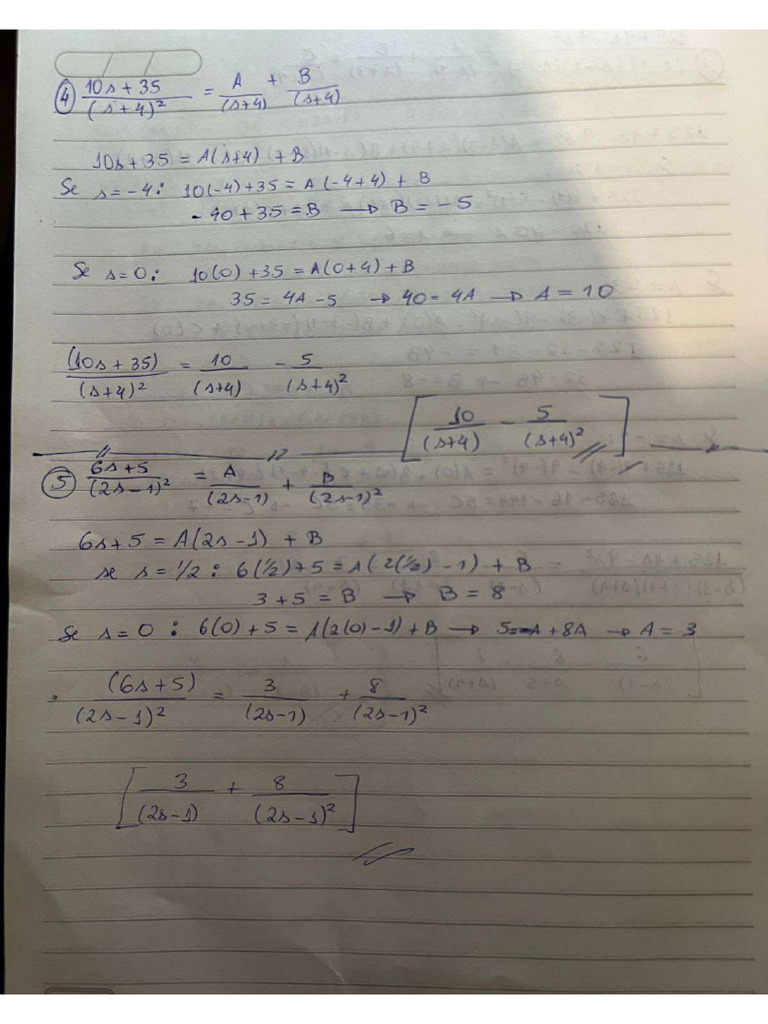 ④ (10s+35)/(s+4)² = A/(s+4) + B/(s+4)
10s+35 = A(s+4) + B
Se s=-4: 10(-4)+35 = A(-4+4) + B
-40+35 = B → B = -5
Se s=0: 10(0)+35 = A(0+4)+B
35 = 4A-5 → 40 = 4A → A = 10
(10s+35)/(s+4)² = 10/(s+4) - 5/(s+4)²
[10/(s+4) - 5/(s+4)²]
⑤ (6s+5)/(2s-1)² = A/(2s-1) + B/(2s-1)²
6s+5 = A(2s-1) + B
se s=1/2: 6(1/2)+5 = A(2(1/2)-1) + B
3+5 = B → B = 8
Se s=0: 6(0)+5 = A(2(0)-1)+B → 5=-A+8A → A = 3
(6s+5)/(2s-1)² = 3/(2s-1) + 8/(2s-1)²
[3/(2s-1) + 8/(2s-1)²]